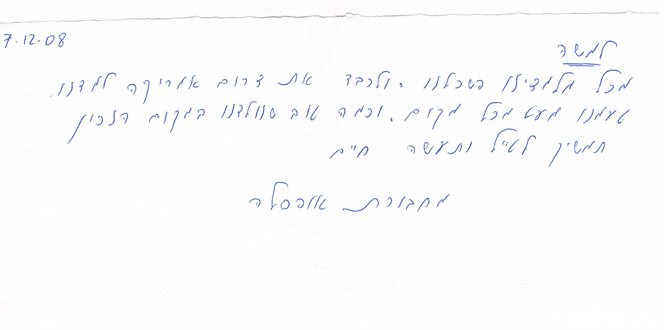 7.12.08
למשה
מכל מלמדינו השכלנו. ולכבד את דרום אמריקה למדנו.
טעמנו מעט מכל מקום. וכמה טוב שנולדנו במקום הנכון
תמשיך לטייל ותעשה חיים
מחבורת אופסלה